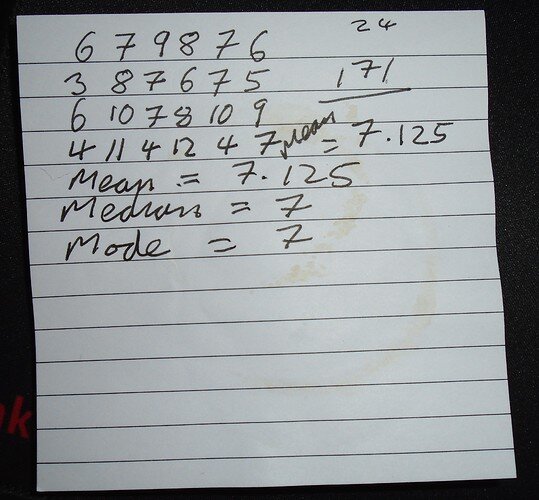 24
6 7 9 8 7 6
3 8 7 6 7 5 171
6 10 7 8 10 9
4 11 4 12 4 7 Mean = 7.125
Mean = 7.125
Median = 7
Mode = 7